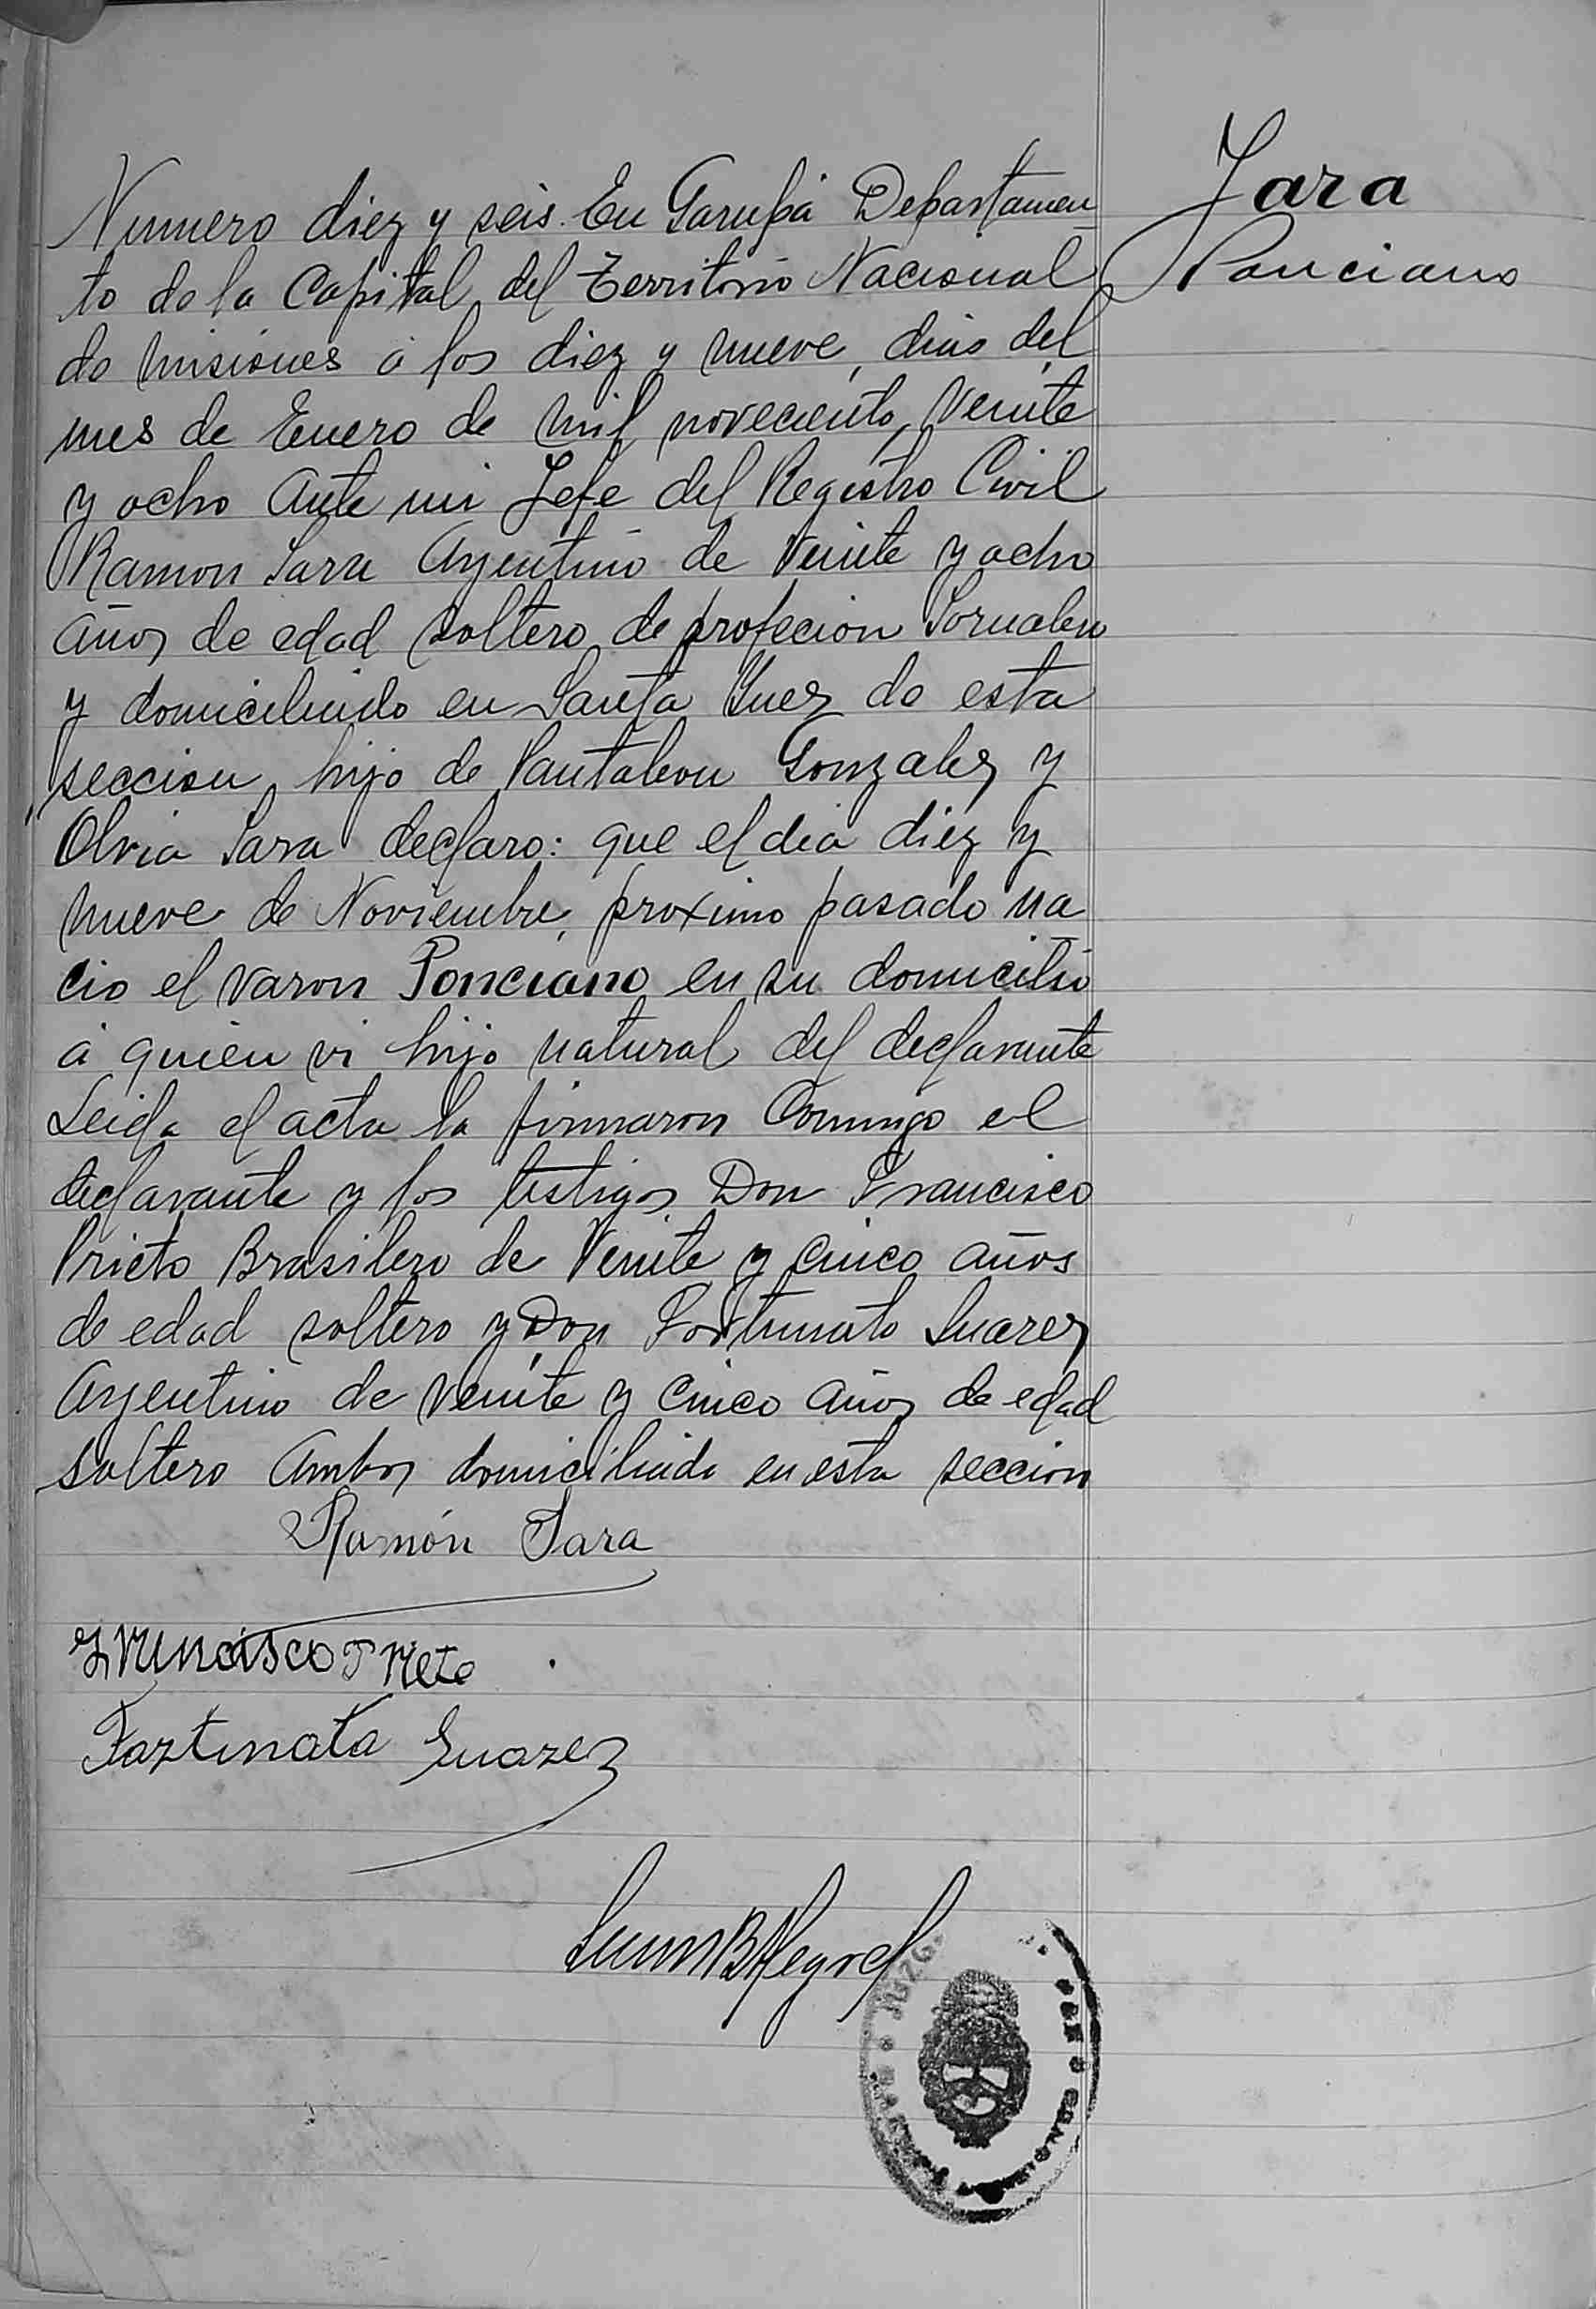 Jara
Ponciano
Numero diez y seis. En Garupá Departamen
to de la Capital del Territorio Nacional
de Misiones á los diez y nueve dias del
mes de Enero de mil noveciento veinte
y ocho Ante mi Jefe del Registro Civil
Ramon Jara Argentino de veinte y ocho
años de edad soltero de profecion Jornalero
y domiciliado en Santa Ynez de esta
seccion hijo de Pantaleon Gonzalez y
Olvia Jara declaro: que el dia diez y
nueve de Noviembre proximo pasado na
cio el varon Ponciano en su domicilio
á quien vi hijo natural del declarante
Leida el acta la firmaron Conmigo el
declarante y los testigos Don Francisco
Prieto Brasilero de Veinte y cinco años
de edad soltero y Don Fortunato Suarez
Argentino de veinte y cinco años de edad
soltero Ambos domiciliado en esta seccion
Ramón Jara
Francisco Prieto
Fortunato Suarez
JUZG